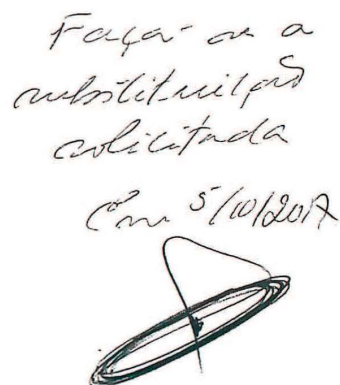 Faça-se a
substituição
solicitada
Em 5/10/2017